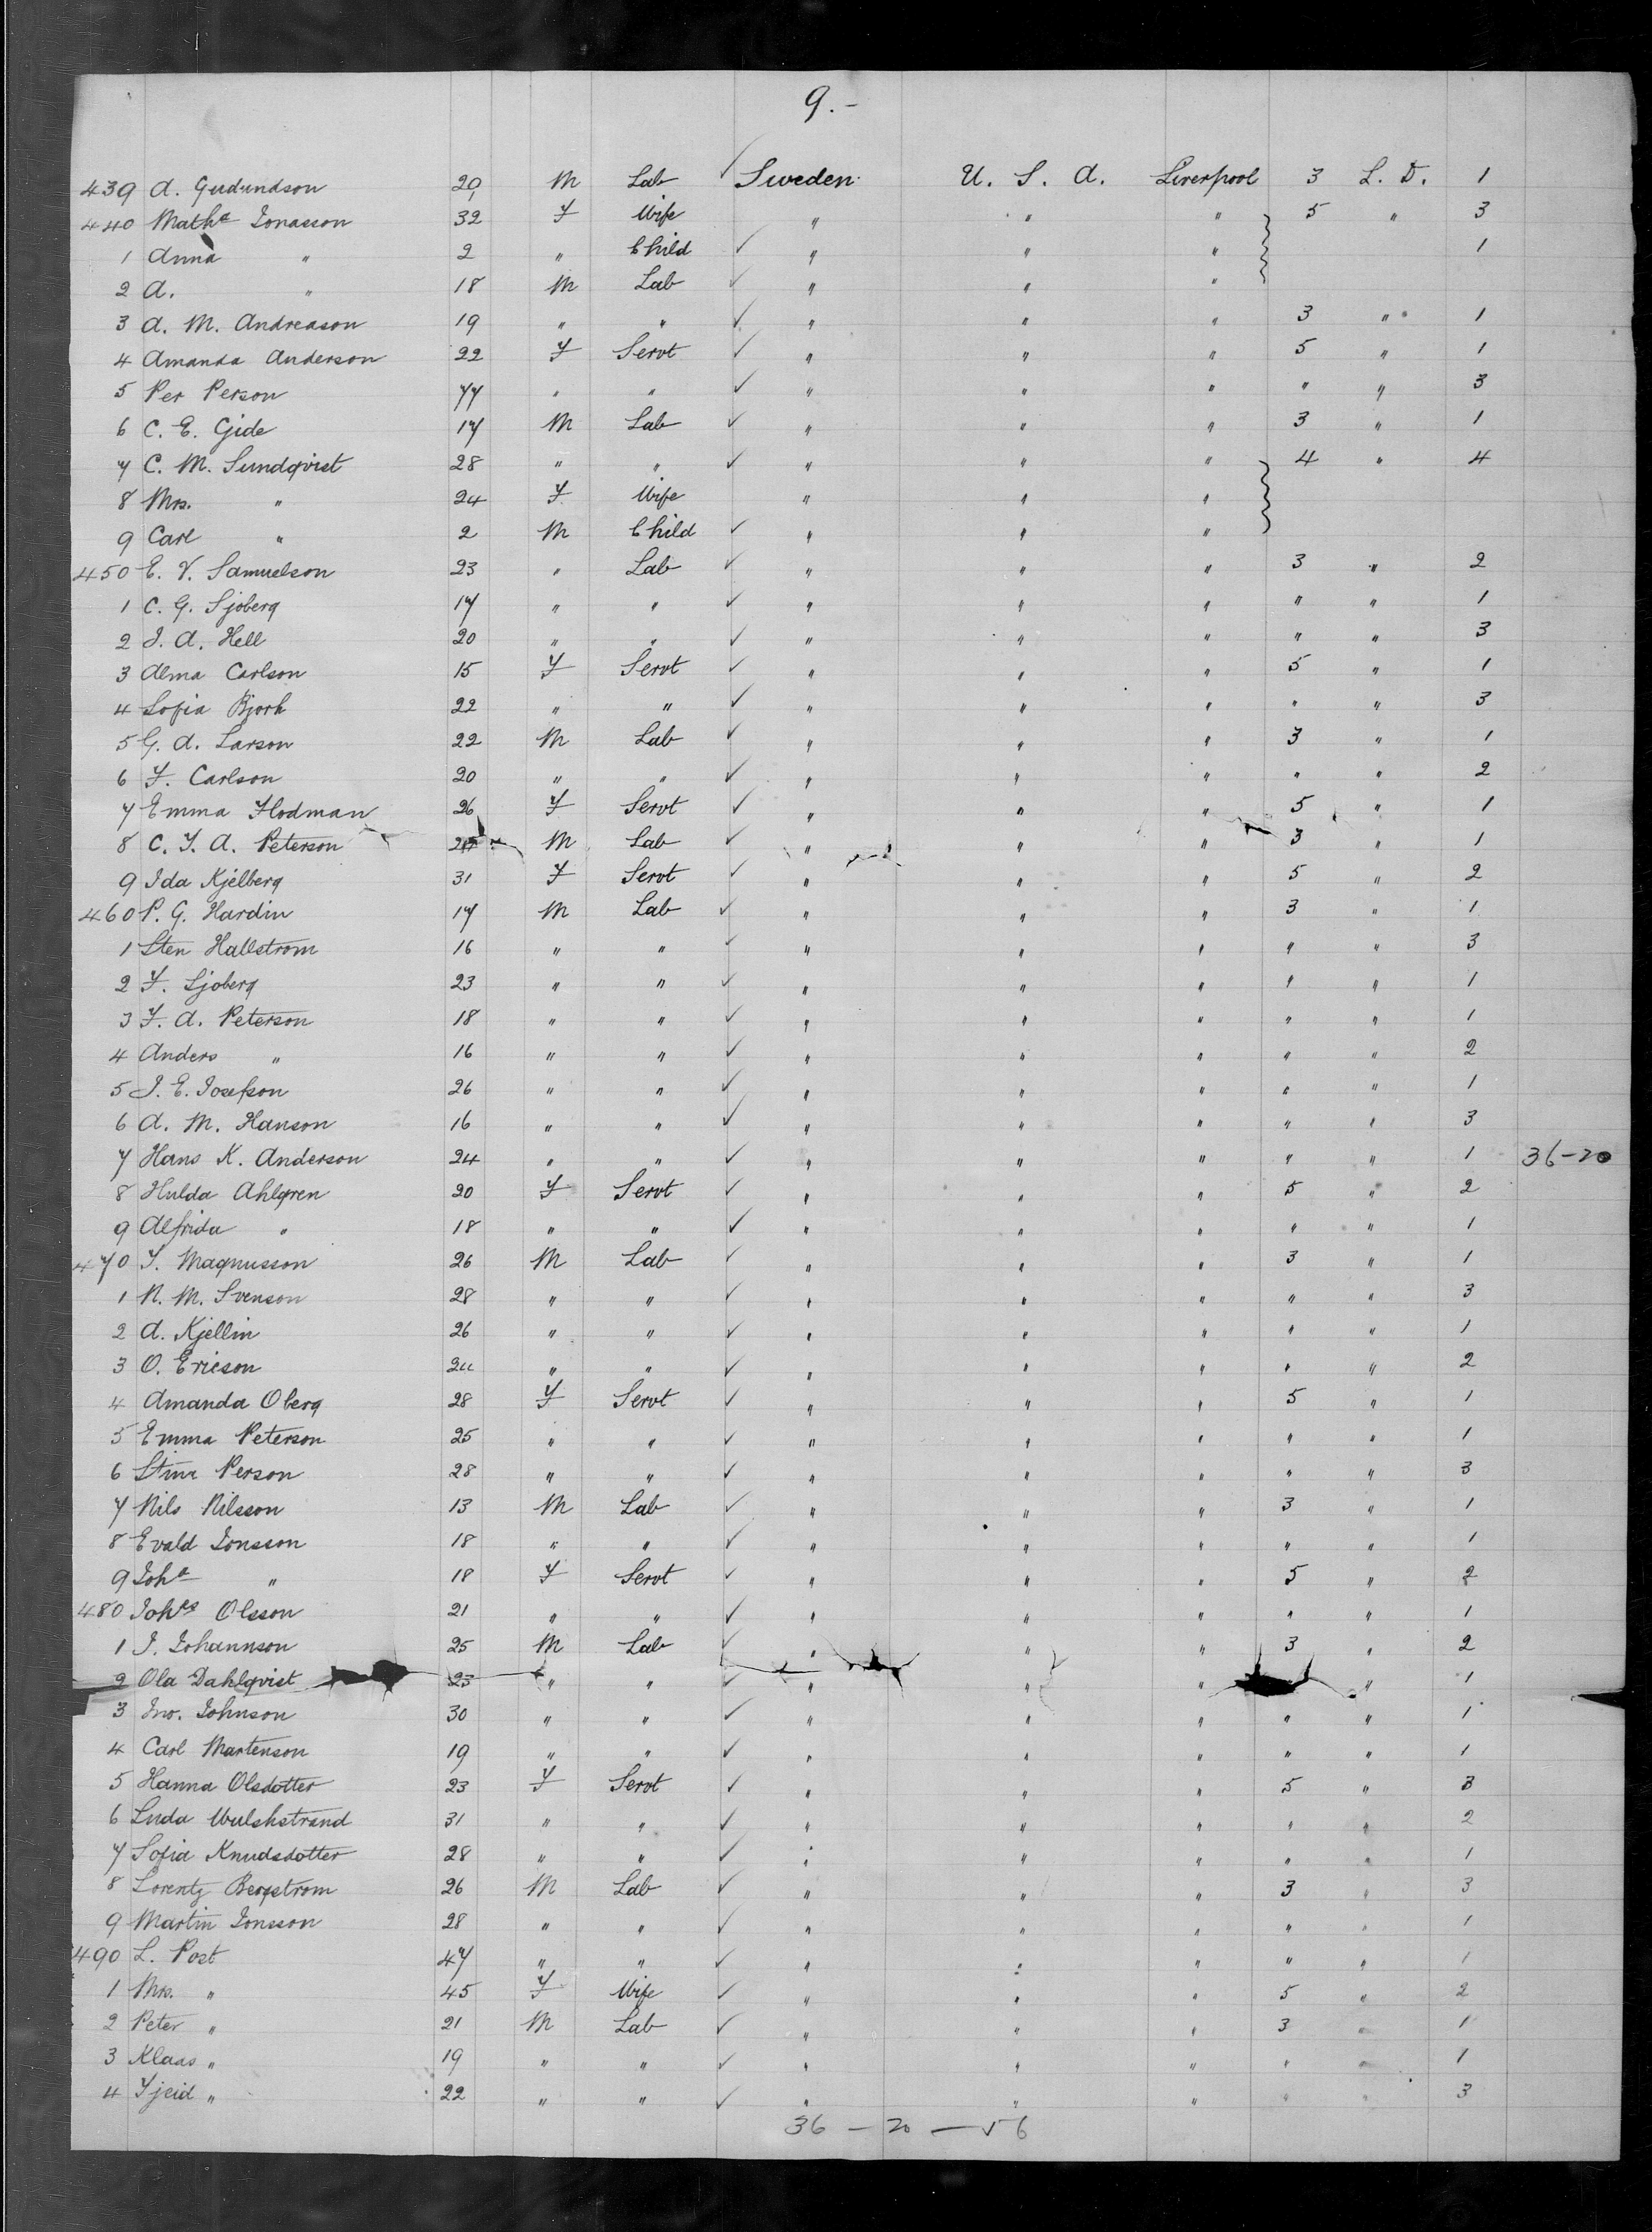 9.-
439 A. Gudundson 20 M Lab Sweden U. S. A. Liverpool 3 L. D. 1
440 Matha Jonasson 32 F Wife " " " 5 " 3
1 Anna " 2 " Child " " " 1
2 A. " 18 M Lab " " "
3 A. M. Andreason 19 " " " " " 3 " 1
4 Amanda Anderson 22 F Servt " " " 5 " 1
5 Per Person 77 " " " " " " " 3
6 C. E. Gide 17 M Lab " " " 3 " 1
7 C. M. Sundqvist 28 " " " " " 4 " 4
8 Mrs. " 24 F Wife " " "
9 Carl " 2 M Child " " "
450 E. V. Samuelson 23 " Lab " " " 3 " 2
1 C. G. Sjoberg 17 " " " " " " " 1
2 J. A. Hell 20 " " " " " " " 3
3 Alma Carlson 15 F Servt " " " 5 " 1
4 Sofia Bjork 22 " " " " " " " 3
5 G. A. Larson 22 M Lab " " " 3 " 1
6 F. Carlson 20 " " " " " " " 2
7 Emma Flodman 26 F Servt " " " 5 " 1
8 C. J. A. Peterson M Lab " " " 3 " 1
9 Ida Kjelberg 31 F Servt " " " 5 " 2
460 P. G. Hardin 17 M Lab " " " 3 " 1
1 Sten Hallstrom 16 " " " " " " " 3
2 F. Sjoberg 23 " " " " " " " 1
3 F. A. Peterson 18 " " " " " " " 1
4 Anders " 16 " " " " " " " 2
5 J. E. Josefson 26 " " " " " " " 1
6 A. M. Hanson 16 " " " " " " " 3
7 Hans K. Anderson 24 " " " " " " " 1 36-20
8 Hulda Ahlgren 20 F Servt " " " 5 " 2
9 Alfrida " 18 " " " " " " " 1
470 J. Magnusson 26 M Lab " " " 3 " 1
1 N. M. Svenson 28 " " " " " " " 3
2 A. Kjellin 26 " " " " " " " 1
3 O. Ericson 24 " " " " " " " 2
4 Amanda Oberg 28 F Servt " " " 5 " 1
5 Emma Peterson 25 " " " " " " " 1
6 Stina Person 28 " " " " " " " 3
7 Nils Nilsson 13 M Lab " " " 3 " 1
8 Evald Jonsson 18 " " " " " " " 1
9 Joha " 18 F Servt " " " 5 " 2
480 Johs Olsson 21 " " " " " " " 1
1 J. Johannson 25 M Lab " " " 3 " 2
2 Ola Dahlqvist 23 " " " " " " 1
3 Jno. Johnson 30 " " " " " " " 1
4 Carl Martenson 19 " " " " " " " 1
5 Hanna Olsdotter 23 F Servt " " " 5 " 3
6 Luda Wulshstrand 31 " " " " " " " 2
7 Sofia Knudsdotter 28 " " " " " " " 1
8 Lorentz Bergstrom 26 M Lab " " " 3 " 3
9 Martin Jonsson 28 " " " " " " " 1
490 L. Post 47 " " " " " " " 1
1 Mrs. " 45 F Wife " " " 5 " 2
2 Peter " 21 M Lab " " " 3 " 1
3 Klaas " 19 " " " " " " " 1
4 Fjeid " 22 " " " " " " " 3
36 - 20 - 56